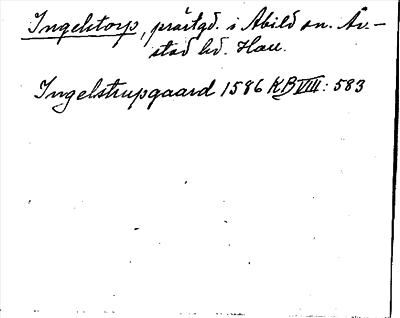 Ingelstorp, prästgd. i Abild sn. År-
stad hd. Hall.
Ingelstrupgaard 1586 KB VIII: 583